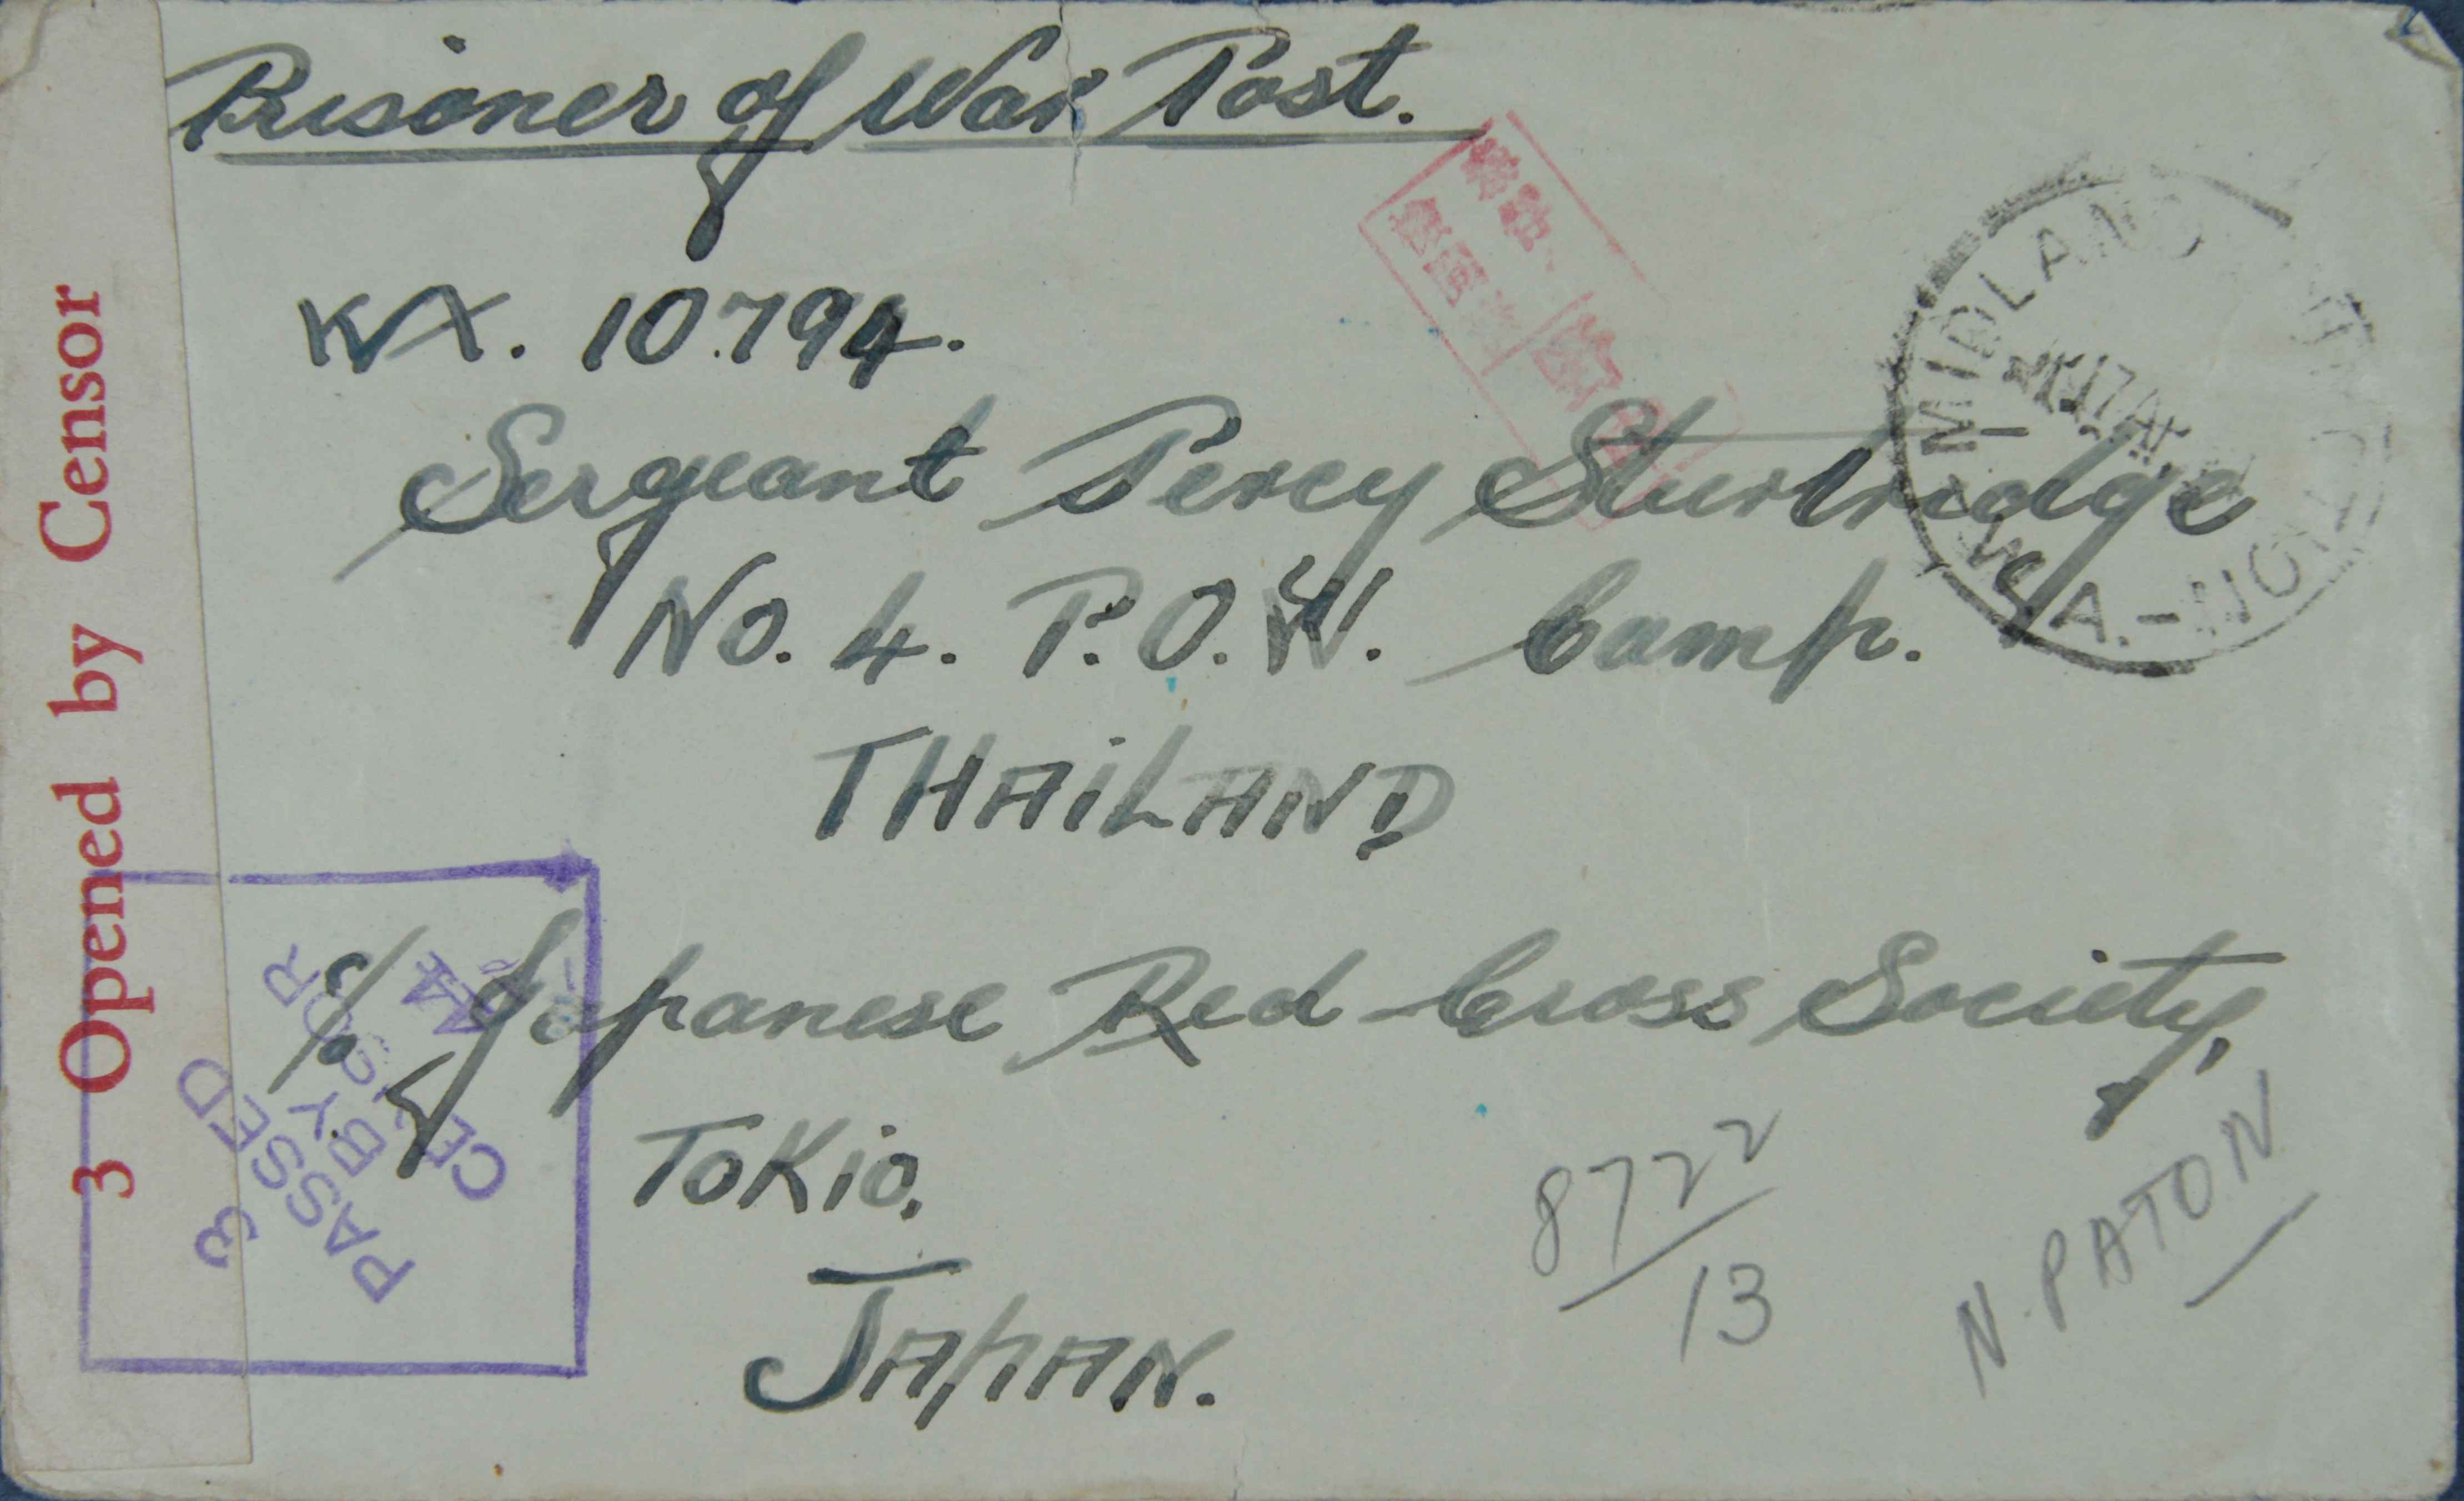 Prisoner of War Post.
WX. 10794.
Sergeant Percy Sturtridge
No. 4. P.O.W. Camp.
THAILAND
c/o Japanese Red Cross Society,
TOKIO,
JAPAN.
3 Opened by Censor
3
PASSED
BY
CENSOR
MIDLAND JUNCTION
W.A.-
8722/13
N. PATON